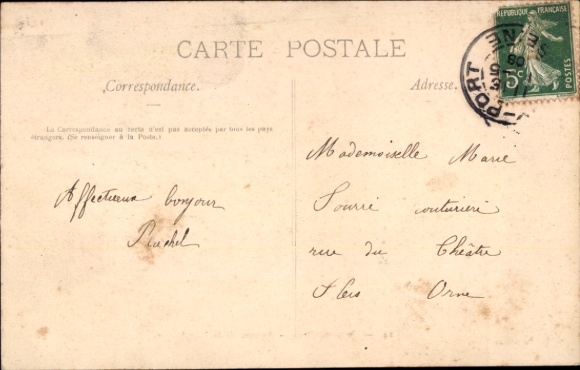 CARTE POSTALE
Correspondance.
Adresse.
RÉPUBLIQUE FRANÇAISE
5c
POSTES
PORT
La Correspondance au recto n'est pas acceptée par tous les pays
étrangers. (Se renseigner à la Poste.)
Affectueux bonjour
Rachel
Mademoiselle Marie
Sourré couturière
rue du Théâtre
Flers Orne